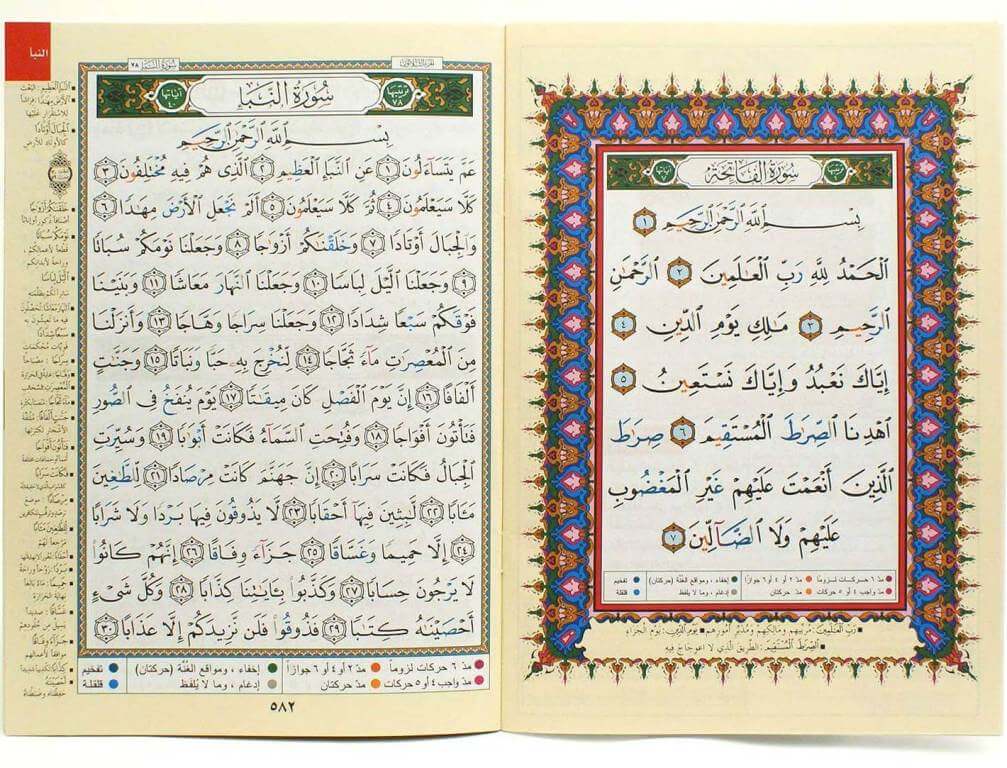 سُورَةُ الفَاتِحَةِ
بِسْمِ اللَّهِ الرَّحْمَٰنِ الرَّحِيمِ ١
الْحَمْدُ لِلَّهِ رَبِّ الْعَالَمِينَ ٢ الرَّحْمَٰنِ
الرَّحِيمِ ٣ مَالِكِ يَوْمِ الدِّينِ ٤
إِيَّاكَ نَعْبُدُ وَإِيَّاكَ نَسْتَعِينُ ٥
اهْدِنَا الصِّرَاطَ الْمُسْتَقِيمَ ٦ صِرَاطَ
الَّذِينَ أَنْعَمْتَ عَلَيْهِمْ غَيْرِ الْمَغْضُوبِ
عَلَيْهِمْ وَلَا الضَّالِّينَ ٧
مدّ ٦ حركات لزوماً مدّ ٢ أو ٤ أو ٦ جوازاً إخفاء، ومواقع الغُنَّة (حركتان) تفخيم
مدّ واجب ٤ أو ٥ حركات مدّ حركتان إدغام، وما لا يُلفَظ قلقلة
رَبِّ الْعَالَمِينَ: مُرَبِّيهِم ومالكِهِم ومُدَبِّرِ أمُورِهِم يَوْمِ الدِّينِ: يَومِ الجَزَاءِ
الصِّرَاطَ الْمُسْتَقِيمَ: الطريقَ الذي لا اعوجاجَ فيه
النبأ
سُورَةُ النَّبَإِ ٧٨
ترتيبها ٧٨ سُورَةُ النَّبَإِ آياتها ٤٠
بِسْمِ اللَّهِ الرَّحْمَٰنِ الرَّحِيمِ
عَمَّ يَتَسَاءَلُونَ ١ عَنِ النَّبَإِ الْعَظِيمِ ٢ الَّذِي هُمْ فِيهِ مُخْتَلِفُونَ ٣
كَلَّا سَيَعْلَمُونَ ٤ ثُمَّ كَلَّا سَيَعْلَمُونَ ٥ أَلَمْ نَجْعَلِ الْأَرْضَ مِهَادًا ٦
وَالْجِبَالَ أَوْتَادًا ٧ وَخَلَقْنَاكُمْ أَزْوَاجًا ٨ وَجَعَلْنَا نَوْمَكُمْ سُبَاتًا
٩ وَجَعَلْنَا اللَّيْلَ لِبَاسًا ١٠ وَجَعَلْنَا النَّهَارَ مَعَاشًا ١١ وَبَنَيْنَا
فَوْقَكُمْ سَبْعًا شِدَادًا ١٢ وَجَعَلْنَا سِرَاجًا وَهَّاجًا ١٣ وَأَنزَلْنَا
مِنَ الْمُعْصِرَاتِ مَاءً ثَجَّاجًا ١٤ لِّنُخْرِجَ بِهِ حَبًّا وَنَبَاتًا ١٥ وَجَنَّاتٍ
أَلْفَافًا ١٦ إِنَّ يَوْمَ الْفَصْلِ كَانَ مِيقَاتًا ١٧ يَوْمَ يُنفَخُ فِي الصُّورِ
فَتَأْتُونَ أَفْوَاجًا ١٨ وَفُتِحَتِ السَّمَاءُ فَكَانَتْ أَبْوَابًا ١٩ وَسُيِّرَتِ
الْجِبَالُ فَكَانَتْ سَرَابًا ٢٠ إِنَّ جَهَنَّمَ كَانَتْ مِرْصَادًا ٢١ لِّلطَّاغِينَ
مَآبًا ٢٢ لَّابِثِينَ فِيهَا أَحْقَابًا ٢٣ لَّا يَذُوقُونَ فِيهَا بَرْدًا وَلَا شَرَابًا
٢٤ إِلَّا حَمِيمًا وَغَسَّاقًا ٢٥ جَزَاءً وِفَاقًا ٢٦ إِنَّهُمْ كَانُوا
لَا يَرْجُونَ حِسَابًا ٢٧ وَكَذَّبُوا بِآيَاتِنَا كِذَّابًا ٢٨ وَكُلَّ شَيْءٍ
أَحْصَيْنَاهُ كِتَابًا ٢٩ فَذُوقُوا فَلَن نَّزِيدَكُمْ إِلَّا عَذَابًا ٣٠
مدّ ٦ حركات لزوماً مدّ ٢ أو ٤ أو ٦ جوازاً إخفاء، ومواقع الغُنَّة (حركتان) تفخيم
مدّ واجب ٤ أو ٥ حركات مدّ حركتان إدغام، وما لا يُلفَظ قلقلة
٥٨٢